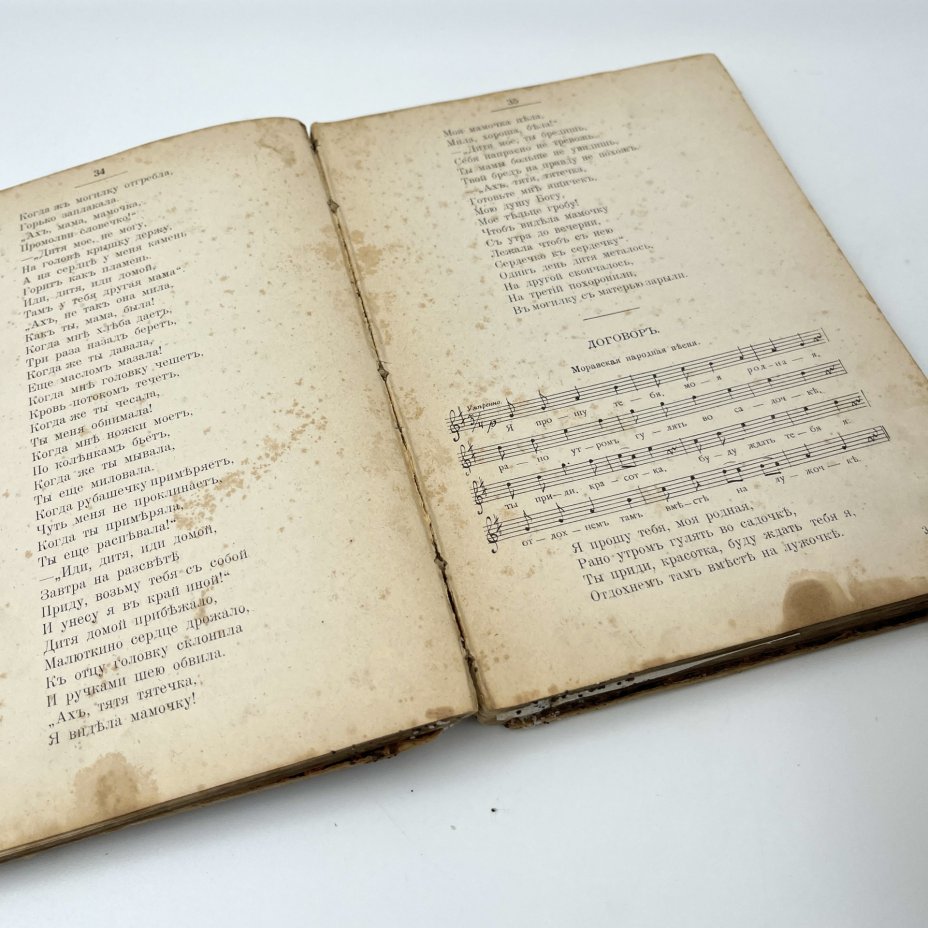 34
Когда жъ могилку отгребла,
Горько заплакала.
„Ахъ, мама, мамочка,
Промолви словечко!“
—„Дитя мое, не могу,
На головѣ крышку держу,
А на сердцѣ у меня камень
Горитъ какъ пламень.
Иди, дитя, иди домой,
Тамъ у тебя другая мама“.
„Ахъ, не такъ она мила,
Какъ ты, мама, была!
Когда мнѣ хлѣба даетъ,
Три раза назадъ беретъ,
Когда же ты давала,
Еще масломъ мазала!
Когда мнѣ головку чешетъ,
Кровь потокомъ течетъ,
Когда же ты чесала,
Ты меня обнимала!
Когда мнѣ ножки моетъ,
По колѣнкамъ бьетъ,
Когда же ты мывала,
Ты еще миловала.
Когда рубашечку примѣряетъ,
Чуть меня не проклинаетъ,
Когда ты примѣряла,
Ты еще распѣвала!“
—„Иди, дитя, иди домой,
Завтра на разсвѣтѣ
Приду, возьму тебя съ собой
И унесу я въ край иной!“
Дитя домой прибѣжало,
Малюткино сердце дрожало,
Къ отцу головку склонила
И ручками шею обвила.
„Ахъ, тятя тятечка,
Я видѣла мамочку!
35
Моя мамочка цѣла,
Мила, хороша, бѣла!“
—„Дитя мое, ты бредишь,
Себя напрасно не тревожь,
Ты мамы больше не увидишь,
Твой бредъ на правду не похожъ.
—„Ахъ, тятя, тятечка,
Готовьте мнѣ ящичекъ,
Мою душу Богу,
Мое тѣльце гробу!
Чтобъ видѣла мамочку
Съ утра до вечерни,
Лежала чтобъ съ нею
Сердечко къ сердечку“.
Одинъ день дитя металось,
На другой скончалось,
На третій похоронили,
Въ могилку съ матерью зарыли.
ДОГОВОРЪ.
Моравская народная пѣсня.
Умѣренно.
Я про — шу те — бя, мо — я род — на — я,
ра — но ут — ромъ, гу — лять во са — доч — кѣ,
ты при — ди, кра — сот — ка, бу — ду ждать те — бя я:
от — дох — немъ тамъ вмѣ — стѣ на лу — жоч — кѣ.
Я прошу тебя, моя родная,
Рано-утромъ гулять во садочкѣ,
Ты приди, красотка, буду ждать тебя я,
Отдохнемъ тамъ вмѣстѣ на лужочкѣ.